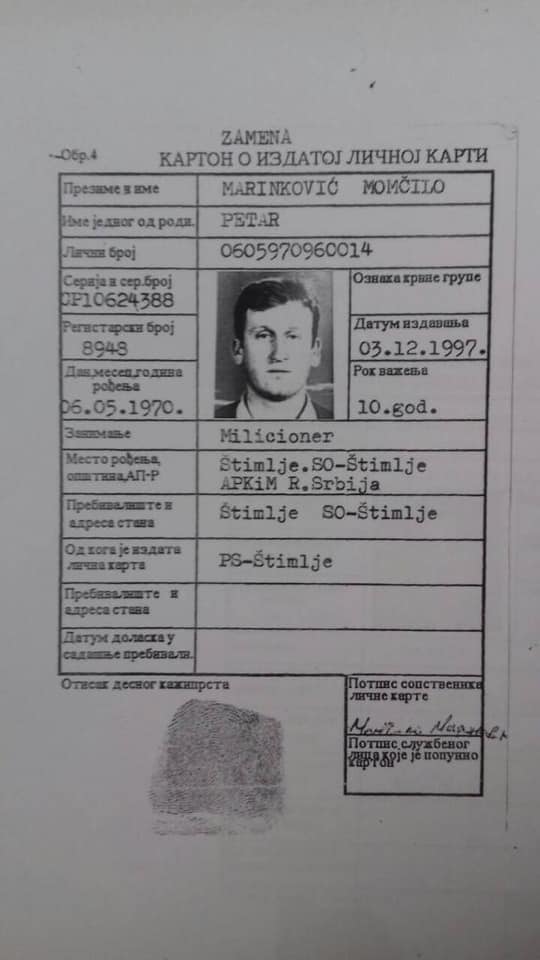 ZAMENA
Обр.4
КАРТОН О ИЗДАТОЈ ЛИЧНОЈ КАРТИ
Презиме и име
MARINKOVIĆ MOMČILO
Име једног од роди.
PETAR
Лични број
0605970960014
Серија и сер.број
10624388
Ознака крвне групе
Регистарски број
8948
Датум издавања
03.12.1997.
Дан,месец,година
рођења
06.05.1970.
Рок важења
10.god.
Занимање
Milicioner
Место рођења,
општина,АП-Р
Štimlje.SO-Štimlje
APKiM R.Srbija
Пребивалиште и
адреса стана
Štimlje SO-Štimlje
Од кога је издата
лична карта
PS-Štimlje
Пребивалиште и
адреса стана
Датум доласка у
садашње пребивали.
Отисак десног кажипрста
Потпис сопственика
личне карте
Потпис службеног
лица које је попунио
картон